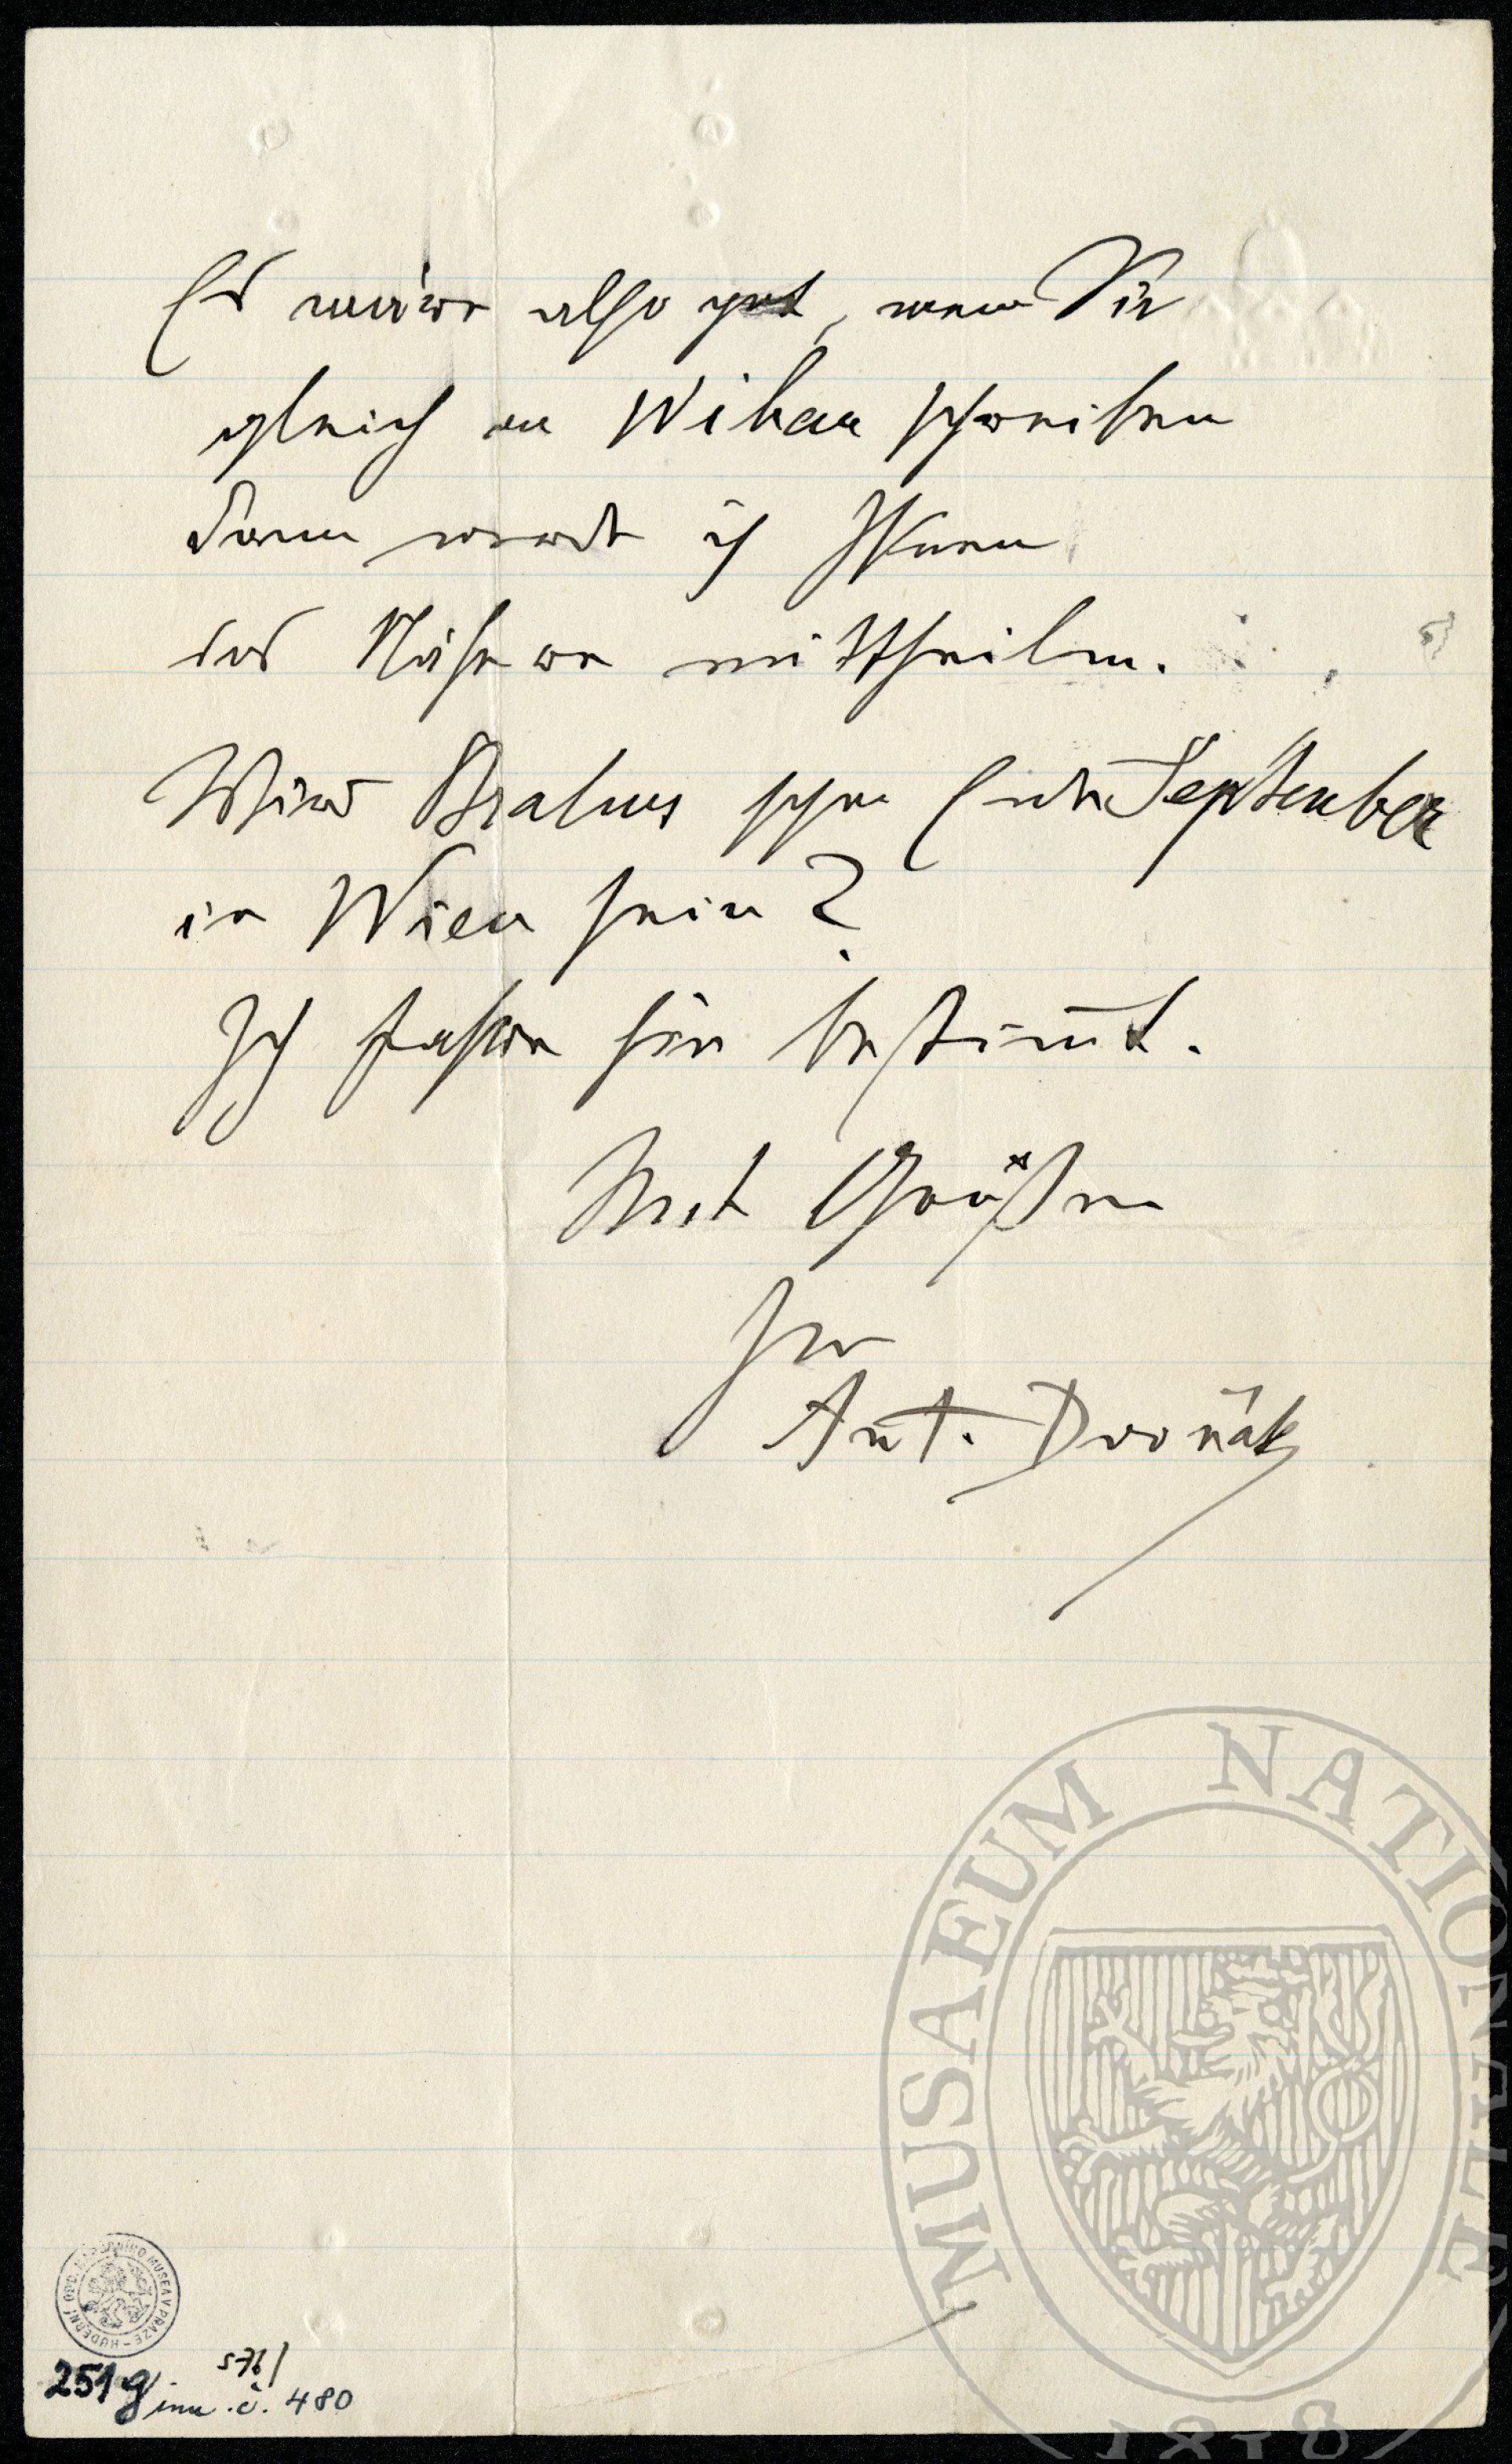 Es wäre also gut, wenn Sie
gleich an Wihan schreiben
dann werde ich Ihnen
das Nähere mittheilen.
Wird Brahms schon Ende September
in Wien sein?
Ich fahre hin bestim̄t.
Mit Grüßen
Ihr
Ant. Dvořák
MUSAEUM NATIONALE
1818
HUDEBNÍ ODD. NÁRODNÍHO MUSEA V PRAZE
576/
251g inv. č. 480